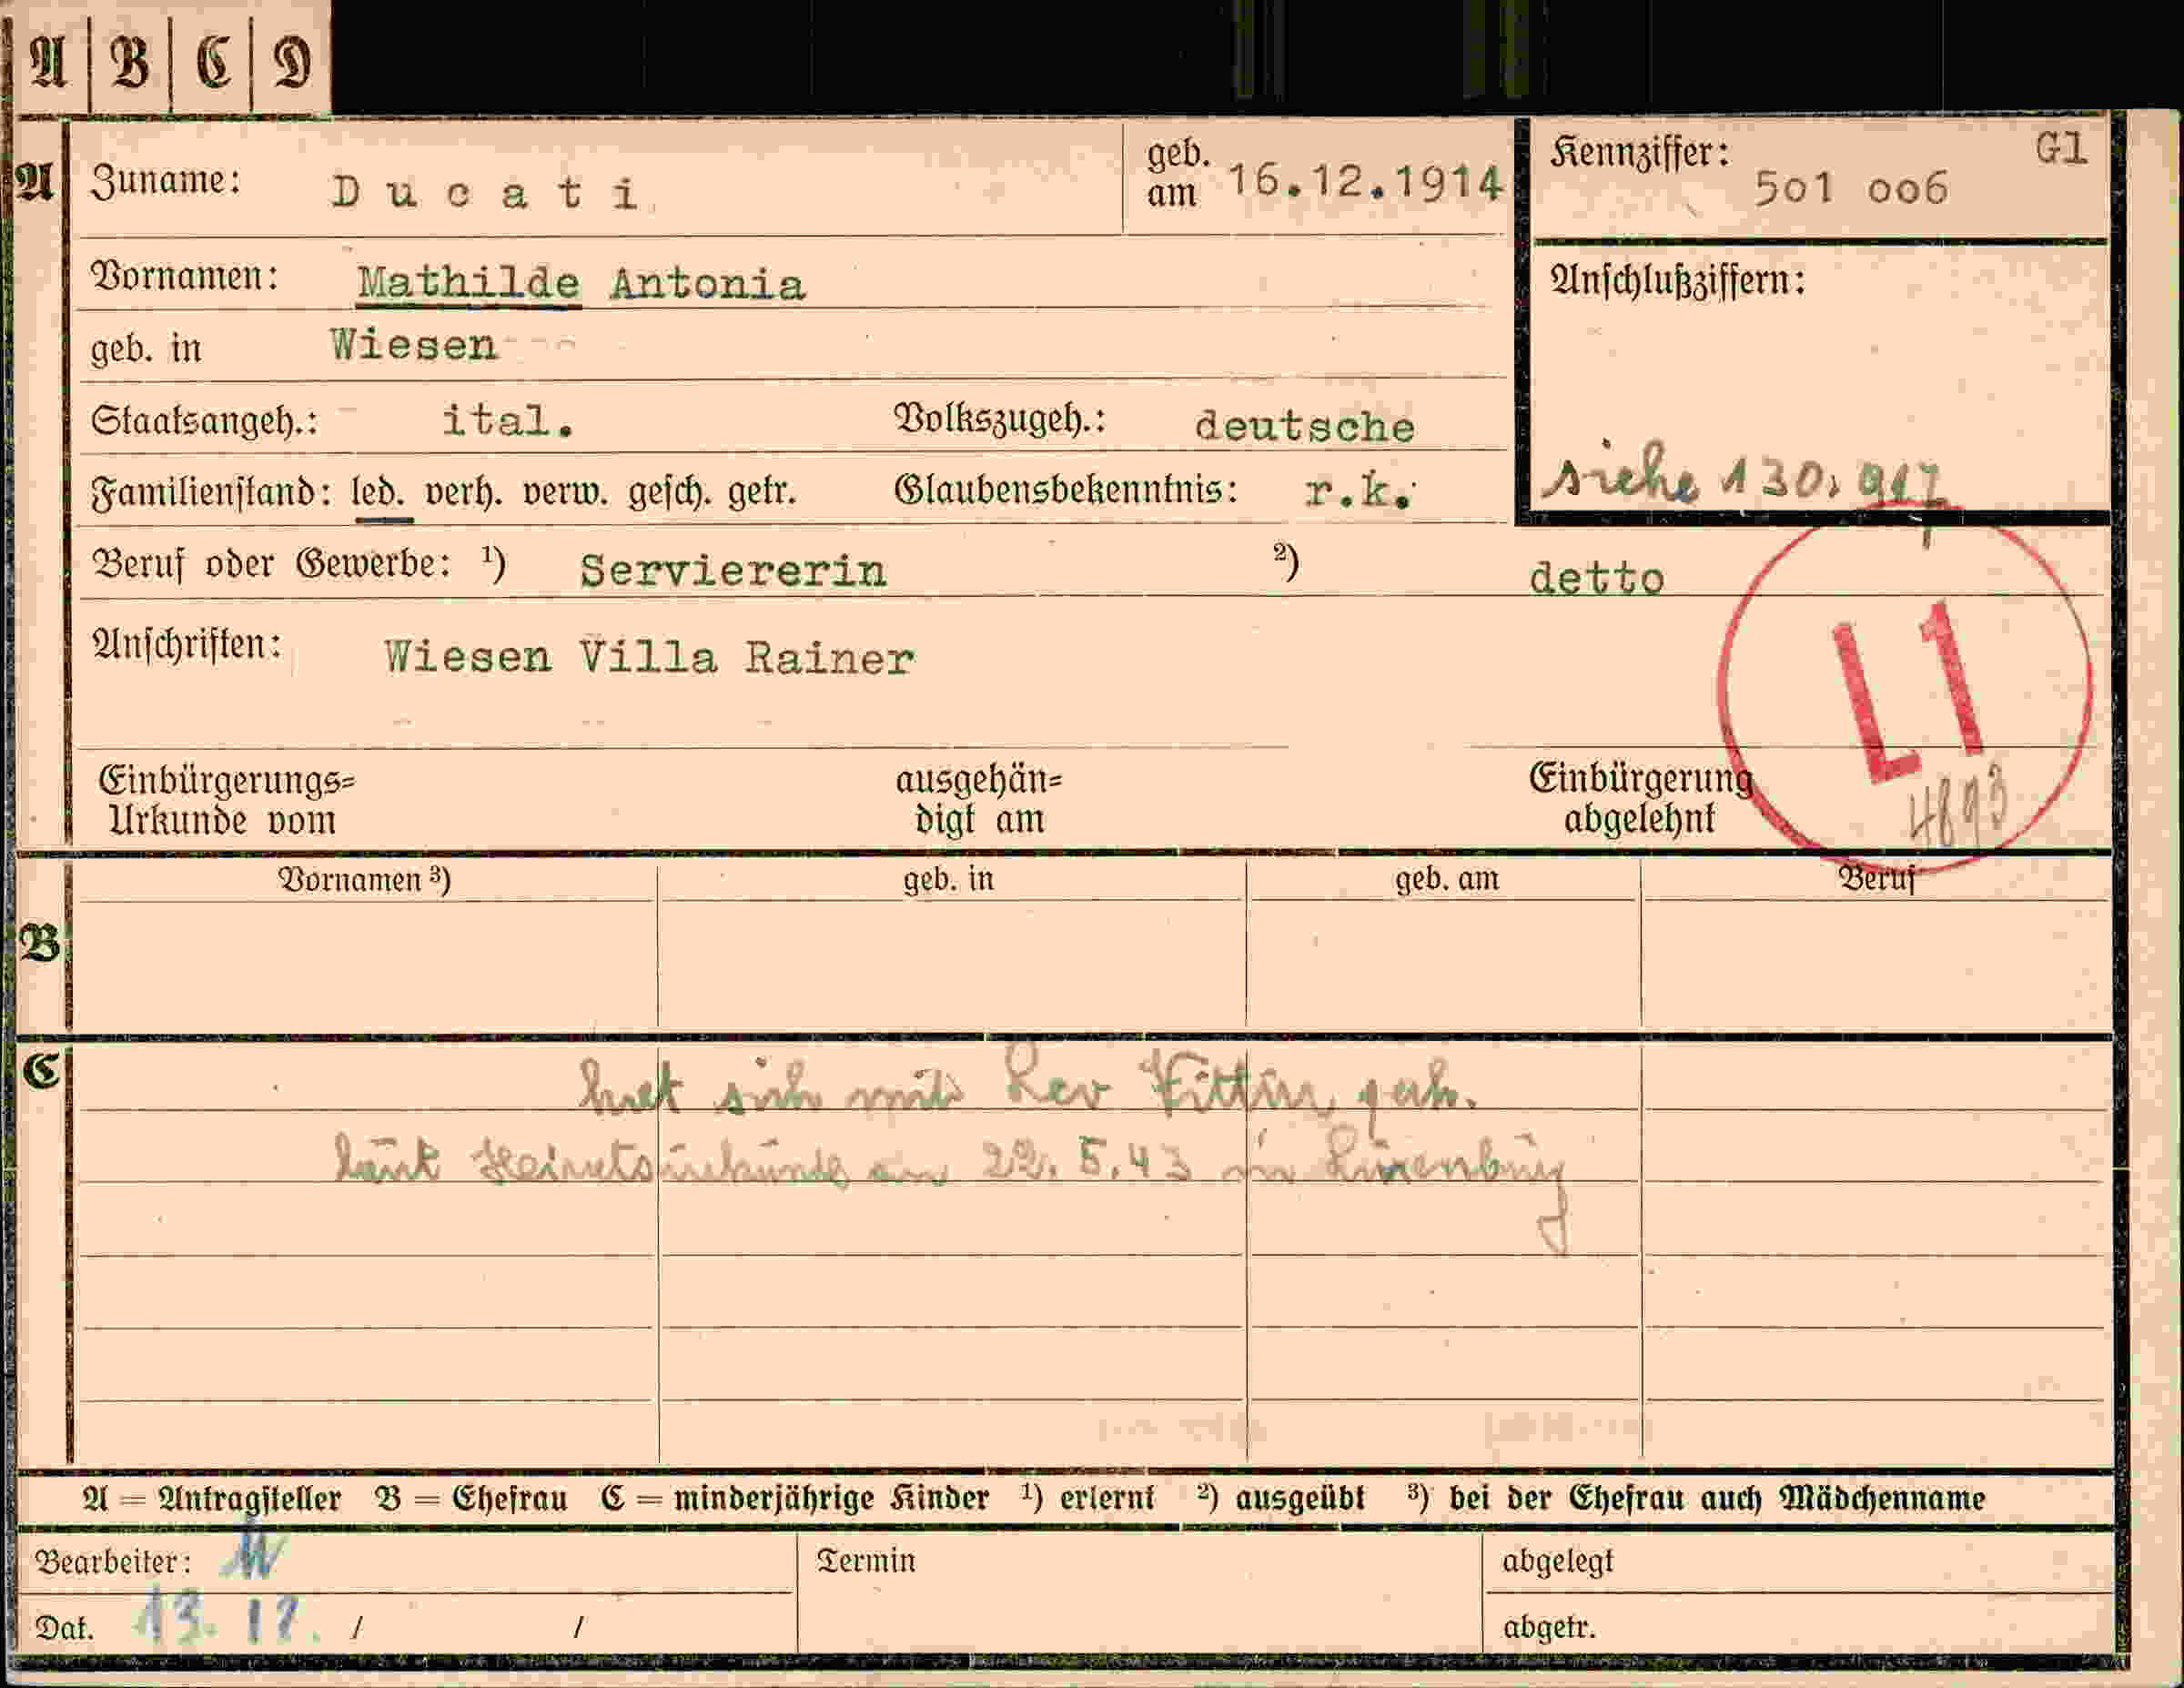 A B C D
A Zuname: Ducati geb. am 16.12.1914 Kennziffer: 501 006 G1
Vornamen: Mathilde Antonia Anschlußziffern:
geb. in Wiesen
Staatsangeh.: ital. Volkszugeh.: deutsche
siehe 130,917
Familienstand: led. verh. verw. gesch. getr. Glaubensbekenntnis: r.k.
Beruf oder Gewerbe: ¹) Serviererin ²) detto
Anschriften: Wiesen Villa Rainer
L1
4893
Einbürgerungs= Urkunde vom ausgehän= digt am Einbürgerung abgelehnt
B Vornamen ³) geb. in geb. am Beruf
C
hat sich mit Leo
laut Heiratsurkunde am 22. 5.43 in
A = Antragsteller B = Ehefrau C = minderjährige Kinder ¹) erlernt ²) ausgeübt ³) bei der Ehefrau auch Mädchenname
Bearbeiter: Termin abgelegt
Dat. 13. 12. / / abgetr.